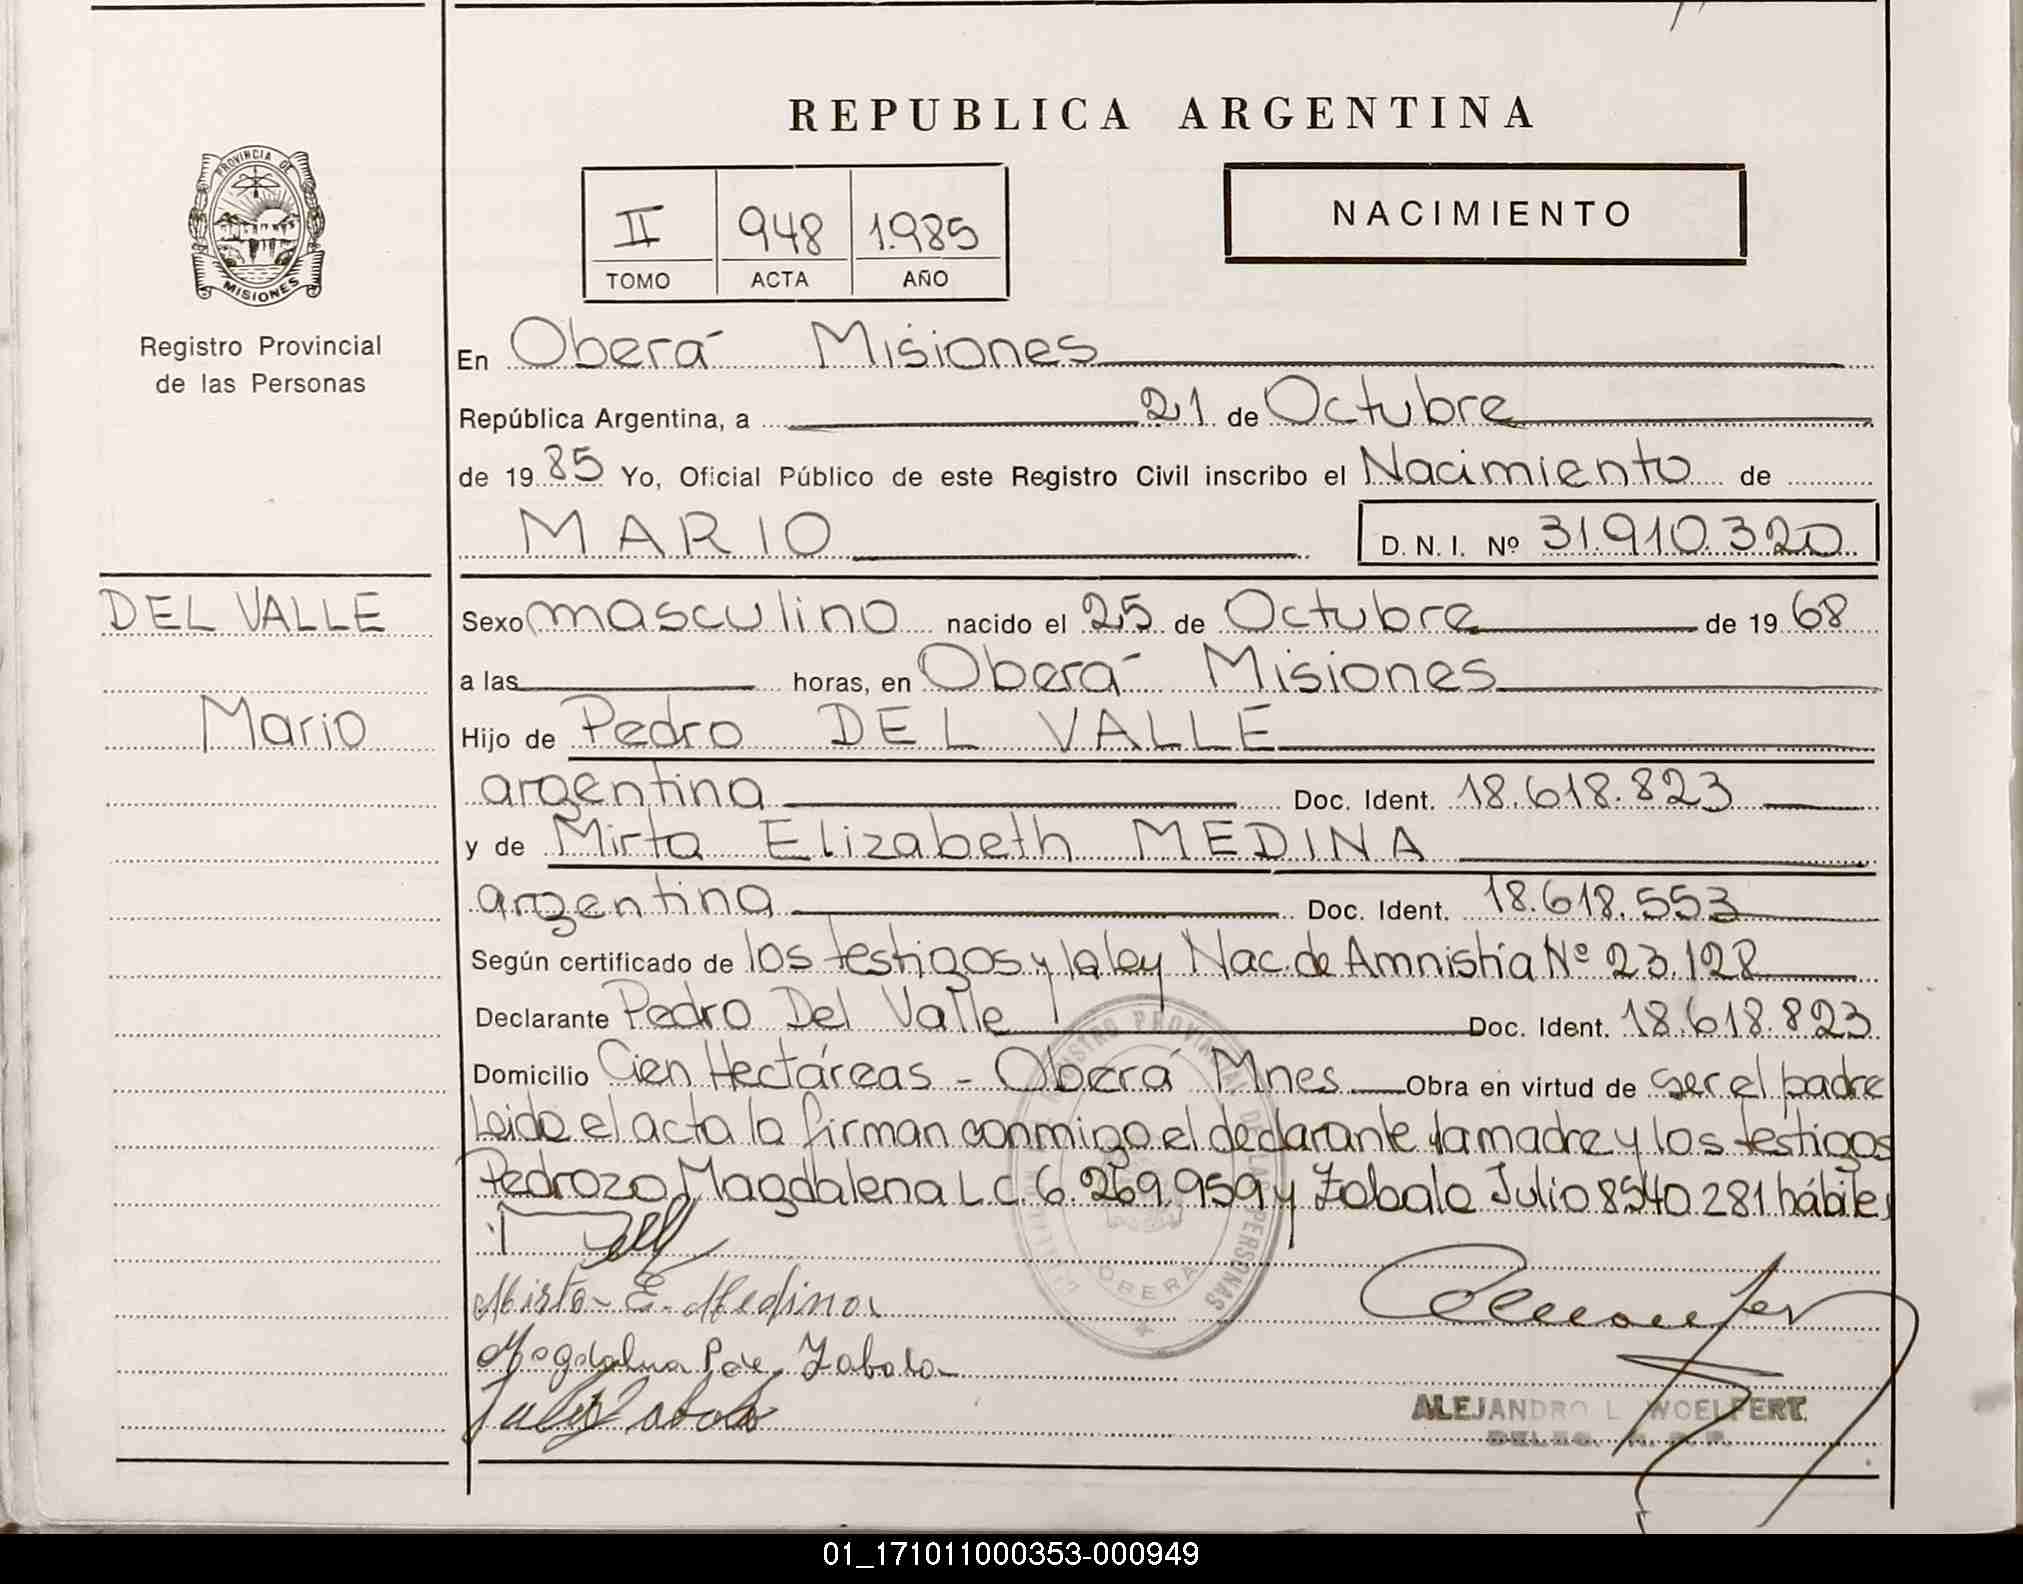 REPUBLICA ARGENTINA
PROVINCIA DE
MISIONES
Registro Provincial
de las Personas
II 948 1.985
TOMO ACTA AÑO
NACIMIENTO
En Oberá Misiones
República Argentina, a 21 de Octubre
de 19 85 Yo, Oficial Público de este Registro Civil inscribo el Nacimiento de
MARIO D. N. I. Nº 31.910.320
DEL VALLE
Mario
Sexo masculino nacido el 25 de Octubre de 19 68
a las horas, en Oberá Misiones
Hijo de Pedro DEL VALLE
argentina Doc. Ident. 18.618.823
y de Mirta Elizabeth MEDINA
argentina Doc. Ident. 18.618.553
Según certificado de los testigos y la ley Nac. de Amnistía Nº 23.128
Declarante Pedro Del Valle Doc. Ident. 18.618.823
Domicilio Cien Hectáreas - Oberá Mnes Obra en virtud de ser el padre
Leida el acta la firman conmigo el declarante la madre y los testigos
Pedrozo Magdalena L C. 6.269.959 y Zabala Julio 8540.281 hábiles
Mirta E. Medina
Magdalena P de Zabala
Julio Zabala
REGISTRO PROVINCIAL DE LAS PERSONAS
OBERA
ALEJANDRO L WOELFERT
01_171011000353-000949